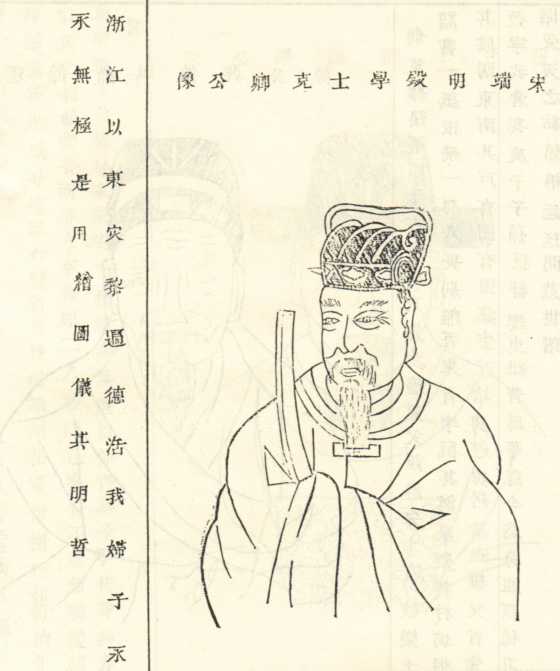 宋端明殿學士克卿公像
浙江以東灾黎過德浩我婦子永
永無極是用繪圖儀其明哲